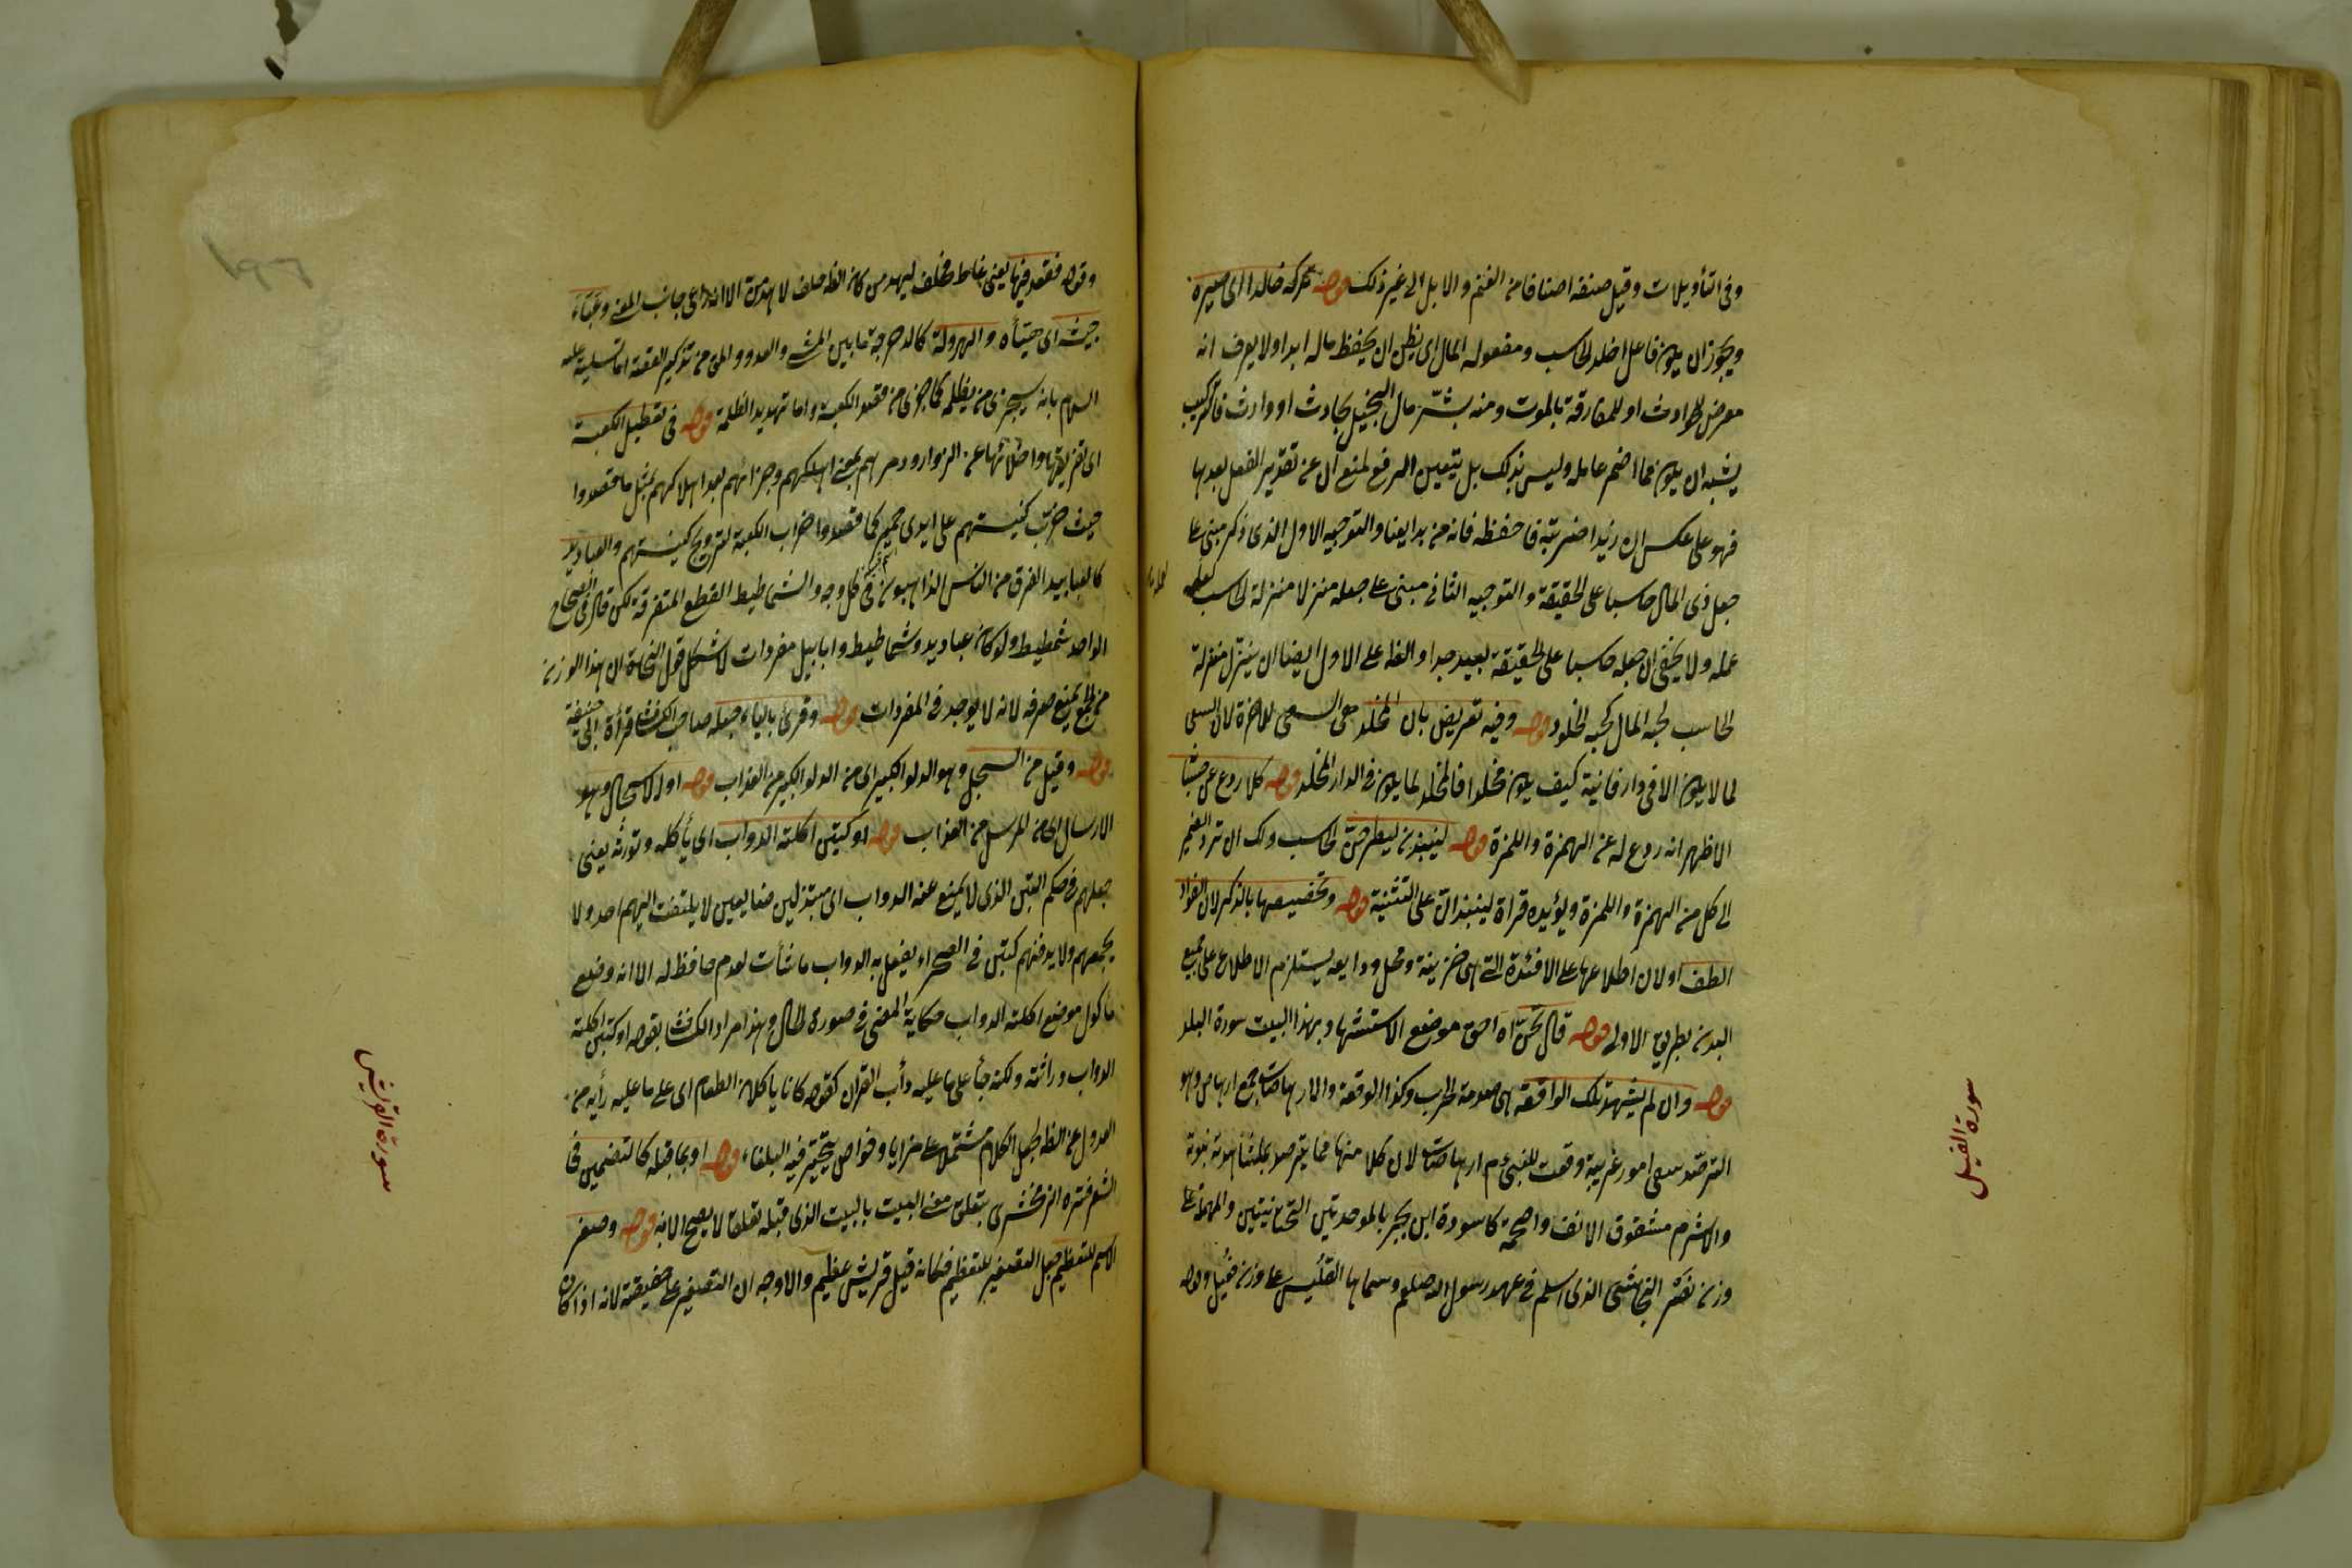 وفى التأويلات وقيل صنفه اصنافا من الغنم والابل الى غير ذلك قوله تركه خالدا اى صيره
ويجوز ان يكون فاعل اخلد الحاسب ومفعوله المال اى يظن ان يحفظ ماله ابدا ولا يعرف انه
معرض للحوادث او للمفارقة بالموت ومنه بشّر مال البخيل بحادث او وارث فالتركيب
يشبه ان يكون مما اضمر عامله وليس بذلك بل يتعين الرفع لمنع ان عن تقدير الفعل بعدها
فهو على عكس ان زيدا ضربته فاحفظه فانه من بدايعنا والتوجيه الاول الذى ذكر مبنى على
جعل ذى المال حاسبا على الحقيقة والتوجيه الثانى مبنى على جعله منزلا منزلة الحاسب لعمله
عمله ولا يخفى ان جعله حاسبا على الحقيقة بعيد جدا والظ على الاول ايضا ان ينزل منزلة
الحاسب لحبه المال كحبه الخلود قوله وفيه تعريض بان المخلد هو السعى للاخرة لان السعى
لما لا يكون الا فى دار فانية كيف يكون مخلدا فالمخلد لما يكون فى الدار المخلد قوله كلا ردع عن حسبانه
الاظهر انه ردع له عن الهمزة واللمزة قوله لينبذن ليطرحن الحاسب ولك ان ترد الضمير
الى كل من الهمزة واللمزة ويؤيده قراءة لينبذان على التثنية قوله وتخصيصها بالذكر لان الفؤاد
الطف او لان اطلاعها على الافئدة التى هى خزينة ومحل ودايعه يستلزم الاطلاع على جميع
البدن بطريق الاولى قوله قال تحنّ اه احق موضع الاستشهاد بهذا البيت سورة البلد
قوله وان لم يشهد تلك الواقعة هى صدمة الحرب وكذا الوقعة والارهاصات جمع ارهاص وهو
الترصد سمى امور غريبة وقعت للنبى ءم ارهاصات لان كلا منها مما يترصد بمشاهدته نبوة
والاشرم مشقوق الانف واصحمة كاسودة ابن بحر بالموحدتين التحتانيتين والمهملة على
وزن نصر النجاشى الذى اسلم فى عهد رسول الله صلعم وسماها القلّيس على وزن قبّيل وقوله
سورة الفيل
وقوله فقعد فيها يعنى غاط مخلف ليهدمن كان الظ حلف لا هدمن الا انه راعى جانب المعنى وعبّاء
جيشه اى هيّأه والهرولة كالدحرجة ما بين المشى والعدو والمق من تذكير القصة اما تسلية عليه
السلام بانه سيجزى من يظلمه كما جزى من قصد الكعبة واما تهديد الظلمة قوله فى تعطيل الكعبة
اى تخريبها واخلائها عن الزوار ودمرهم بمعنى اهلكهم وجزائهم بعد اهلاكهم بمثل ما قصدوا
حيث خرّب كنيستهم على ايدى حمير كما قصدوا خراب الكعبة لترويج كنيستهم والعباديد
كالعبابيد الفرق من الناس الذاهبون فى كل وجه والشماطيط القطع المتفرقة لكن قال فى الصحاح
الواحد شمطيط ولو كان عباديد وشماطيط وابابيل مفردات لاشكل قول النحاة ان هذا الوزن
من الجمع يمنع صرفه لانه لا يوجد فى المفردات قوله وقرئ بالياء جعله صاحب الكشاف قراءة ابى حنيفة
قوله وقيل من السجل وهو الدلو الكبير اى من الدلو الكبير من العذاب قوله او الاسجال وهو
الارسال اى من المرسل من العذاب قوله او كتبن اكلته الدواب اى يأكله وتورثه يعنى
جعلهم فى حكم التبن الذى لا يمنع عنه الدواب اى مبتذلين ضايعين لا يلتفت اليهم احد ولا
يجمعهم ولا يدفنهم كتبن فى الصحراء يفعل به الدواب ما شأت لعدم حافظ له الا انه وضع
مأكول موضع اكلته الدواب حكاية المضى فى صورة الحال وهذا مراد الكشاف بقوله او كتبن اكلته
الدواب وراثته ولكنه جأ على ما عليه دأب القرآن كقوله كانا ياكلان الطعام اى على ما عليه رأيه من
العدول عن الظ لجعل الكلام مشتملا على مزايا وخواص يتحير فيه البلغاء قوله او بما قبله كالتضمين فى
الشعر فسّره الزمخشرى بتعلق معنى البيت بالبيت الذى قبله تعلقا لا يصح الا به قوله وصغر
الاسم للتعظيم جعل التصغير للتعظيم فكانه قيل قريش عظيم والاوجه ان التصغير على حقيقته لانه اذا كان
سورة القريش